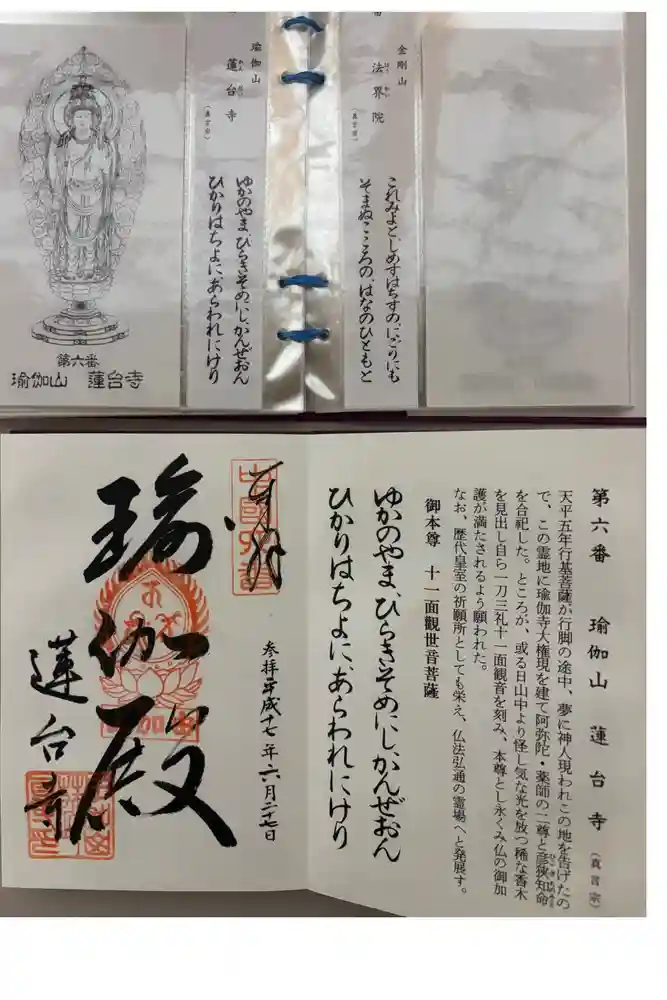 金剛山
法界院
（真言宗）
これみよと、しめすはちすの、にごりにも
そまぬこころの、はなのひともと
瑜伽山
蓮台寺
（真言宗）
ゆかのやま、ひらきそめにし、かんぜおん
ひかりはちよに、あらわれにけり
第六番
瑜伽山 蓮台寺
第六番 瑜伽山 蓮台寺（真言宗）
天平五年行基菩薩が行脚の途中、夢に神人現われこの地を告げたの
で、この霊地に瑜伽寺大権現を建て阿弥陀・薬師の二尊と彦狭知命
を合祀した。ところが、或る日山中より怪し気な光を放つ稀な香木
を見出し自ら一刀三礼十一面観音を刻み、本尊とし永くみ仏の御加
護が満たされるよう願われた。
なお、歴代皇室の祈願所としても栄え、仏法弘通の霊場へと発展す。
御本尊 十一面觀世音菩薩
ゆかのやま、ひらきそめにし、かんぜおん
ひかりはちよに、あらわれにけり
奉拝
中國六番
参拝平成十七年六月二十七日
瑜伽殿
瑜伽山
蓮台寺